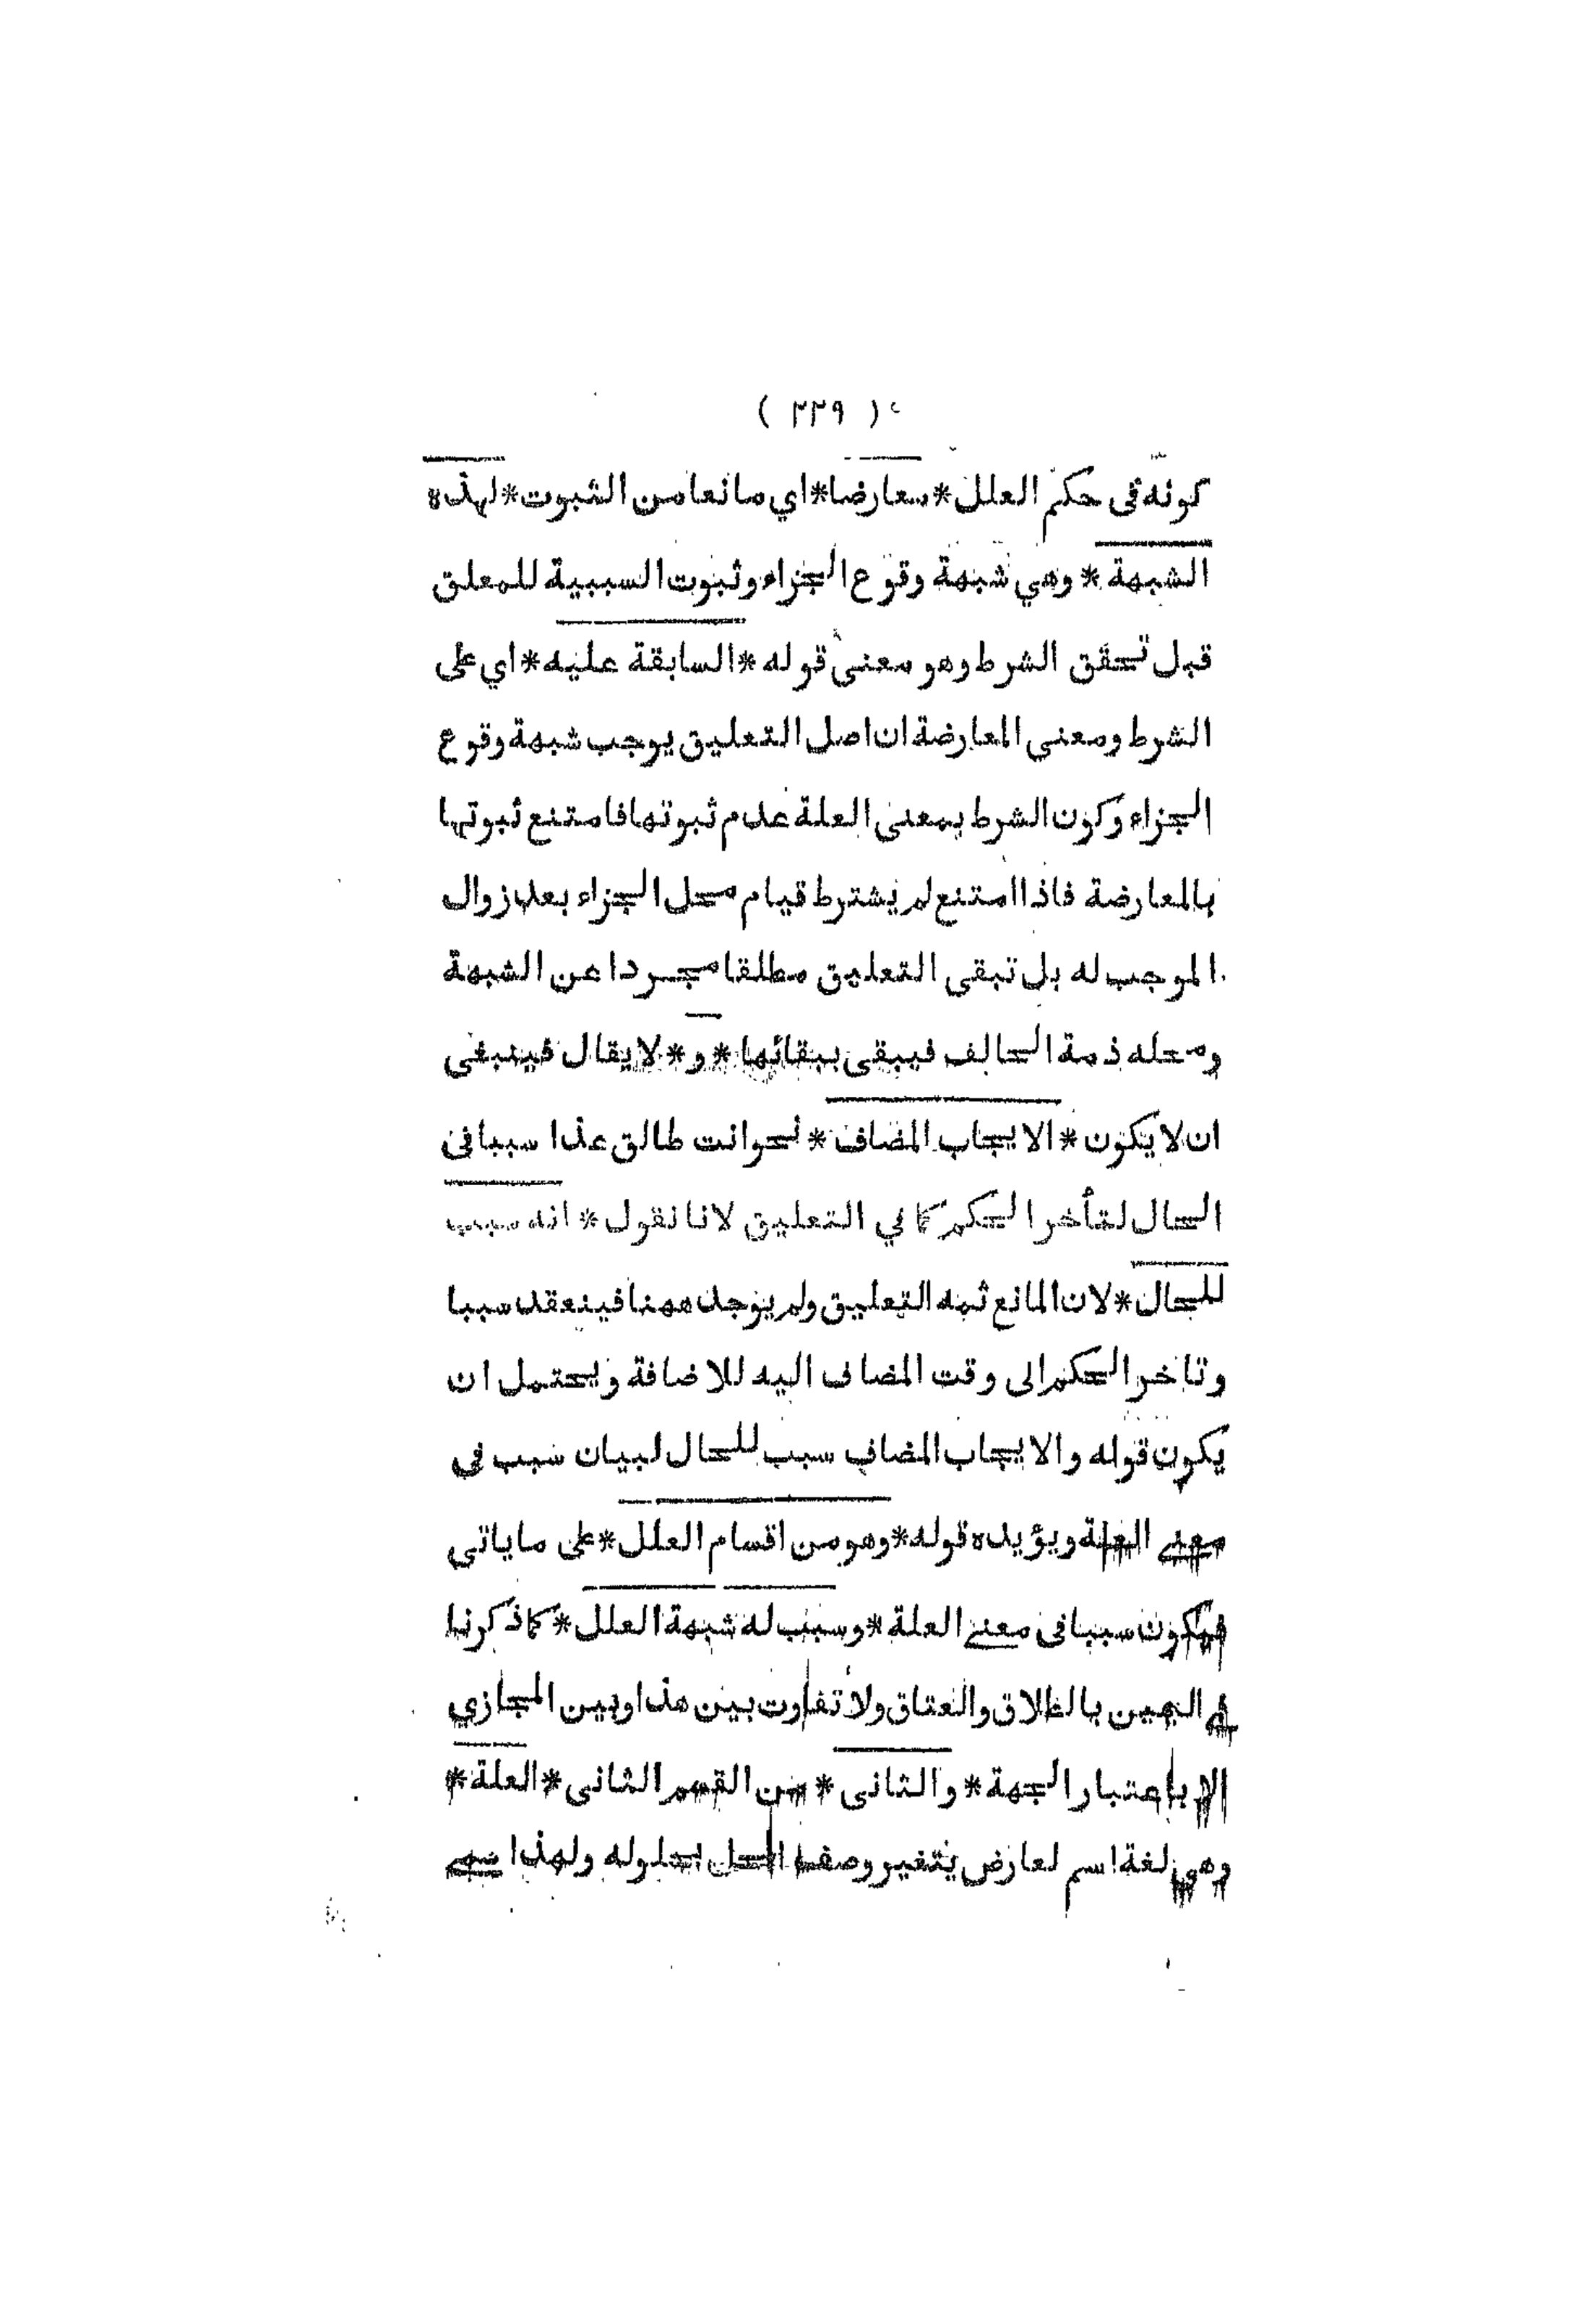 ( ٢٣٩ )
كونه فى حكم العلل * معارضا * اي مانعا من الثبوت * لهذه
الشبهة * وهي شبهة وقوع الجزاء وثبوت السببية للمعلق
قبل تحقق الشرط وهو معنى قوله * السابقة عليه * اي على
الشرط ومعنى المعارضة ان اصل التعليق يوجب شبهة وقوع
الجزاء وكون الشرط بمعنى العلة عدم ثبوتها فامتنع ثبوتها
بالمعارضة فاذا امتنع لم يشترط قيام محل الجزاء بعد زوال
الموجب له بل تبقى التعليق مطلقا مجردا عن الشبهة
ومحله ذمة الحالف فيبقى ببقائها * و * لا يقال فينبغى
ان لا يكون * الايجاب المضاف * نحو انت طالق غدا سببا فى
الحال لتأخر الحكم كما في التعليق لانا نقول * انه سبب
للحال * لان المانع ثمه التعليق ولم يوجد ههنا فينعقد سببا
وتاخر الحكم الى وقت المضاف اليه للاضافة ويحتمل ان
يكون قوله والايجاب المضاف سبب للحال لبيان سبب في
معنے العلة ويؤيده قوله * وهو من اقسام العلل * على ماياتى
فيكون سببا فى معنے العلة * وسبب له شبهة العلل * كما ذكرنا
في اليمين بالطلاق والعتاق ولا تفاوت بين هذا وبين المجازي
الا باعتبار الجهة * والثانى * من القسم الثانى * العلة *
وهي لغة اسم لعارض يتغير وصف المحل بحلوله ولهذا سمے